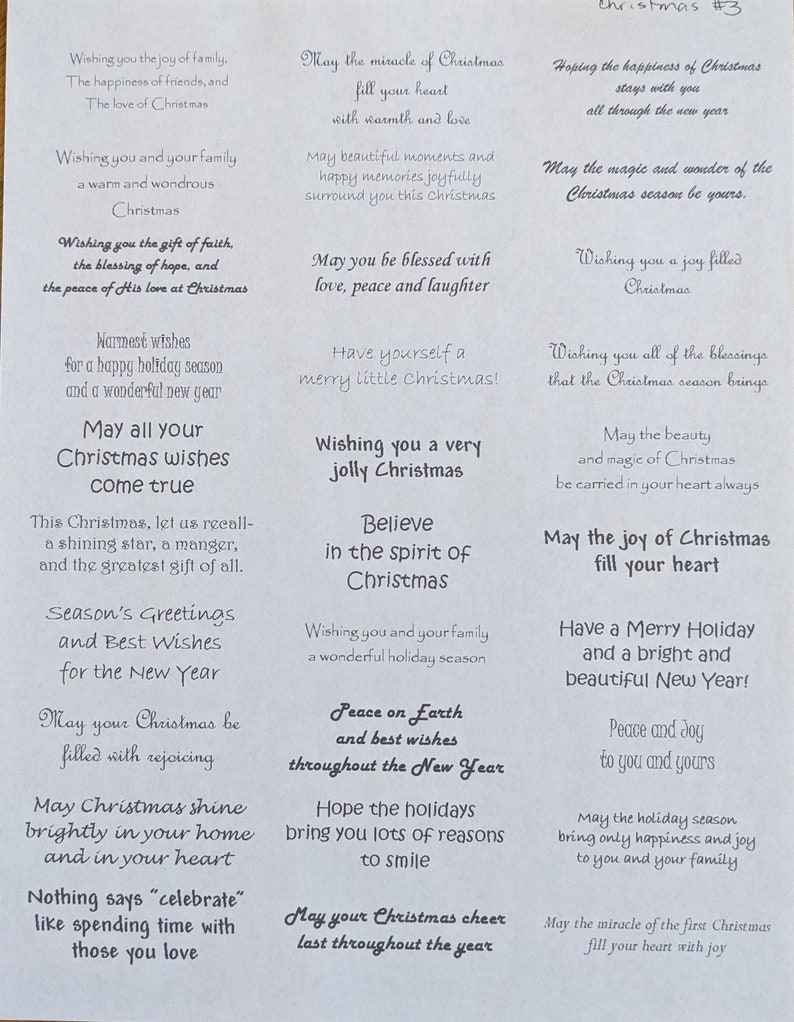 Christmas #3
Wishing you the joy of family,
The happiness of friends, and
The love of Christmas
Wishing you and your family
a warm and wondrous
Christmas
Wishing you the gift of faith,
the blessing of hope, and
the peace of His love at Christmas
Warmest wishes
for a happy holiday season
and a wonderful new year
May all your
Christmas wishes
come true
This Christmas, let us recall-
a shining star, a manger,
and the greatest gift of all.
Season's Greetings
and Best Wishes
for the New Year
May your Christmas be
filled with rejoicing
May Christmas shine
brightly in your home
and in your heart
Nothing says "celebrate"
like spending time with
those you love
May the miracle of Christmas
fill your heart
with warmth and love
May beautiful moments and
happy memories joyfully
surround you this Christmas
May you be blessed with
love, peace and laughter
Have yourself a
merry little Christmas!
Wishing you a very
jolly Christmas
Believe
in the spirit of
Christmas
Wishing you and your family
a wonderful holiday season
Peace on Earth
and best wishes
throughout the New Year
Hope the holidays
bring you lots of reasons
to smile
May your Christmas cheer
last throughout the year
Hoping the happiness of Christmas
stays with you
all through the new year
May the magic and wonder of the
Christmas season be yours.
Wishing you a joy filled
Christmas
Wishing you all of the blessings
that the Christmas season brings
May the beauty
and magic of Christmas
be carried in your heart always
May the joy of Christmas
fill your heart
Have a Merry Holiday
and a bright and
beautiful New Year!
Peace and Joy
to you and yours
May the holiday season
bring only happiness and joy
to you and your family
May the miracle of the first Christmas
fill your heart with joy